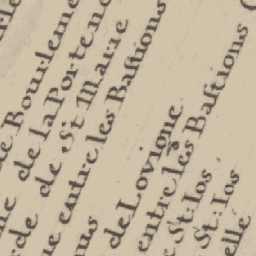 de Bourleme
de la Porte no
de St Marre
entre les Bastions
de Lovigne
entre les Bastions
St: Ios
St: Ios
elle